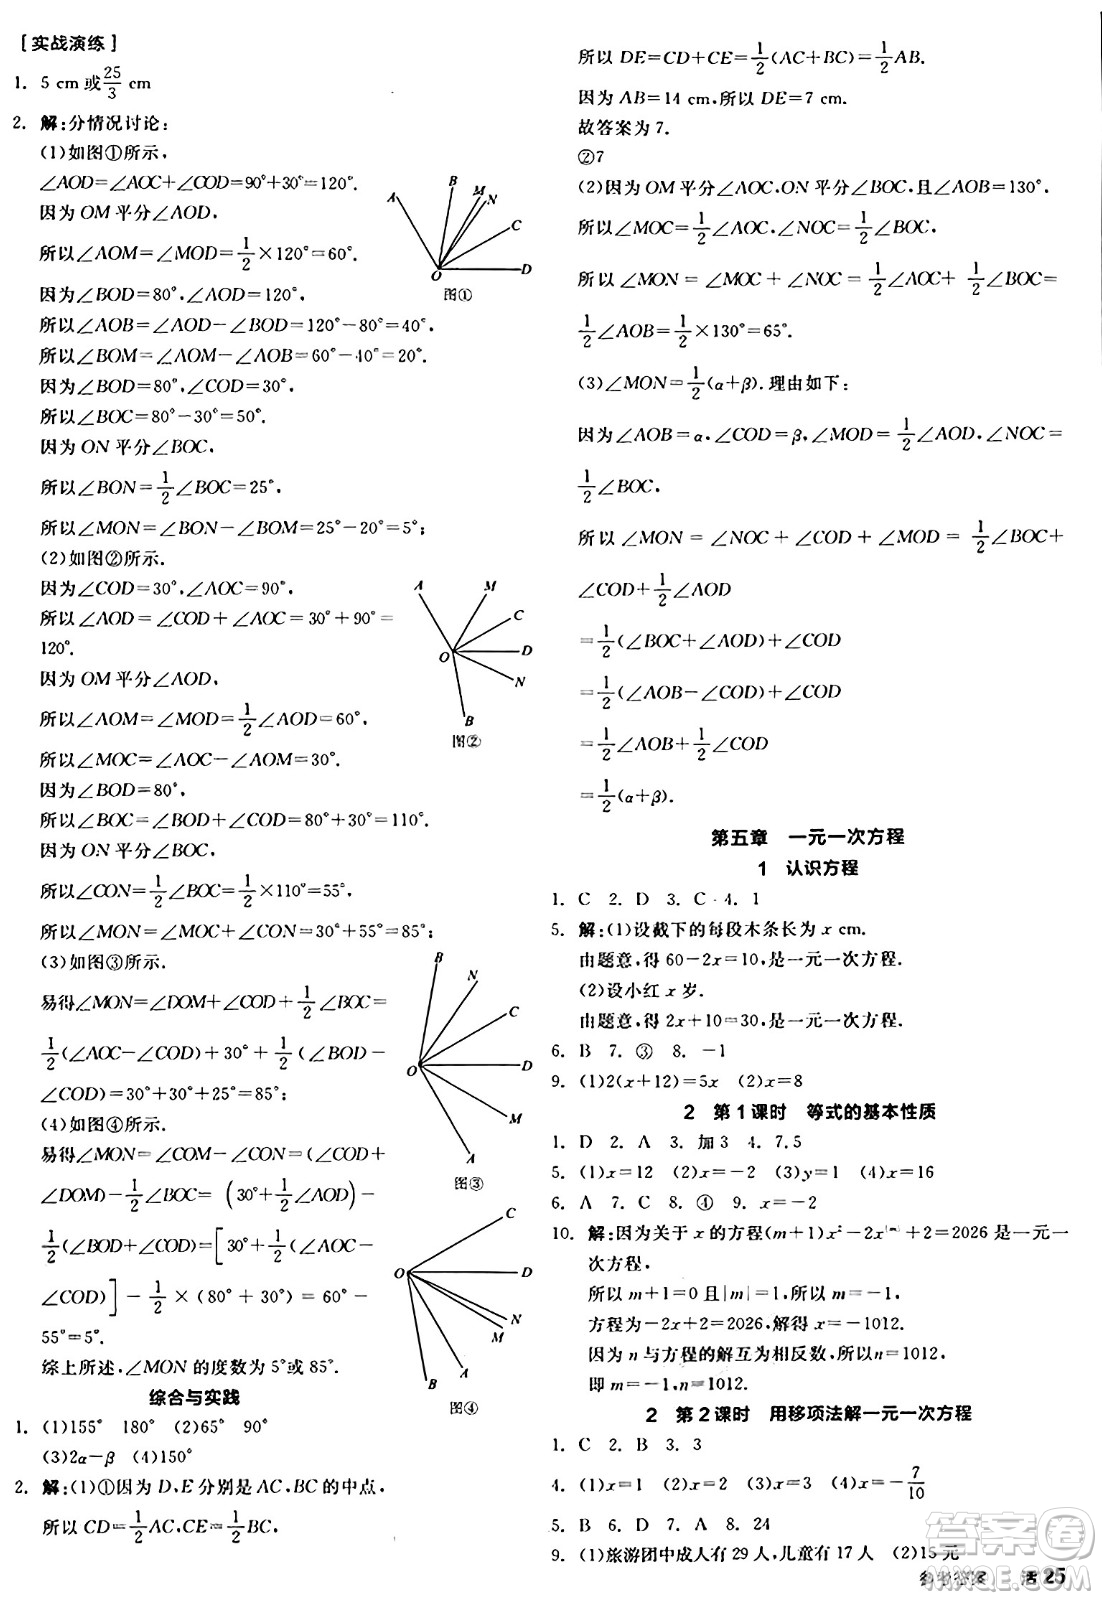 ［实战演练］
1. 5 cm 或 25/3 cm
2. 解:分情况讨论:
(1)如图①所示,
∠AOD=∠AOC+∠COD=90°+30°=120°.
因为 OM 平分∠AOD,
所以∠AOM=∠MOD=1/2×120°=60°.
因为∠BOD=80°,∠AOD=120°,
所以∠AOB=∠AOD-∠BOD=120°-80°=40°,
所以∠BOM=∠AOM-∠AOB=60°-40°=20°.
因为∠BOD=80°,∠COD=30°,
所以∠BOC=80°-30°=50°.
因为 ON 平分∠BOC,
所以∠BON=1/2∠BOC=25°,
所以∠MON=∠BON-∠BOM=25°-20°=5°;
A B M N C O D
图①
(2)如图②所示.
因为∠COD=30°,∠AOC=90°,
所以∠AOD=∠COD+∠AOC=30°+90°=
120°.
因为 OM 平分∠AOD,
所以∠AOM=∠MOD=1/2∠AOD=60°,
所以∠MOC=∠AOC-∠AOM=30°.
因为∠BOD=80°,
所以∠BOC=∠BOD+∠COD=80°+30°=110°.
因为 ON 平分∠BOC,
所以∠CON=1/2∠BOC=1/2×110°=55°,
所以∠MON=∠MOC+∠CON=30°+55°=85°;
A M C O D N B
图②
(3)如图③所示.
易得∠MON=∠DOM+∠COD+1/2∠BOC=
1/2(∠AOC-∠COD)+30°+1/2(∠BOD-
∠COD)=30°+30°+25°=85°;
B N C O D M A
图③
(4)如图④所示.
易得∠MON=∠COM-∠CON=(∠COD+
∠DOM)-1/2∠BOC=(30°+1/2∠AOD)-
1/2(∠BOD+∠COD)=[30°+1/2(∠AOC-
∠COD)]-1/2×(80°+30°)=60°-
55°=5°.
综上所述,∠MON 的度数为 5°或 85°.
C O D N M A B
图④
综合与实践
1. (1)155° 180° (2)65° 90°
(3)2α-β (4)150°
2. 解:(1)①因为 D,E 分别是 AC,BC 的中点,
所以 CD=1/2AC,CE=1/2BC,
所以 DE=CD+CE=1/2(AC+BC)=1/2AB.
因为 AB=14 cm,所以 DE=7 cm.
故答案为 7.
②7
(2)因为 OM 平分∠AOC,ON 平分∠BOC,且∠AOB=130°,
所以∠MOC=1/2∠AOC,∠NOC=1/2∠BOC,
所以∠MON=∠MOC+∠NOC=1/2∠AOC+1/2∠BOC=
1/2∠AOB=1/2×130°=65°.
(3)∠MON=1/2(α+β).理由如下:
因为∠AOB=α,∠COD=β,∠MOD=1/2∠AOD,∠NOC=
1/2∠BOC,
所以∠MON=∠NOC+∠COD+∠MOD=1/2∠BOC+
∠COD+1/2∠AOD
=1/2(∠BOC+∠AOD)+∠COD
=1/2(∠AOB-∠COD)+∠COD
=1/2∠AOB+1/2∠COD
=1/2(α+β).
第五章 一元一次方程
1 认识方程
1. C 2. D 3. C 4. 1
5. 解:(1)设截下的每段木条长为 x cm.
由题意,得 60-2x=10,是一元一次方程.
(2)设小红 x 岁.
由题意,得 2x+10=30,是一元一次方程.
6. B 7. ③ 8. -1
9. (1)2(x+12)=5x (2)x=8
2 第1课时 等式的基本性质
1. D 2. A 3. 加 3 4. 7.5
5. (1)x=12 (2)x=-2 (3)y=1 (4)x=16
6. A 7. C 8. ④ 9. x=-2
10. 解:因为关于 x 的方程(m+1)x²-2x|m|+2=2026 是一元一
次方程,
所以 m+1=0 且|m|=1,所以 m=-1,
方程为-2x+2=2026,解得 x=-1012.
因为 n 与方程的解互为相反数,所以 n=1012.
即 m=-1,n=1012.
2 第2课时 用移项法解一元一次方程
1. C 2. B 3. 3
4. (1)x=1 (2)x=-1 (3)x=2 (4)x=-7/10
5. B 6. D 7. A 8. 24
9. (1)旅游团中成人有 29 人,儿童有 17 人 (2)15 元
参考答案 活 25
答案圈
MXQE.COM